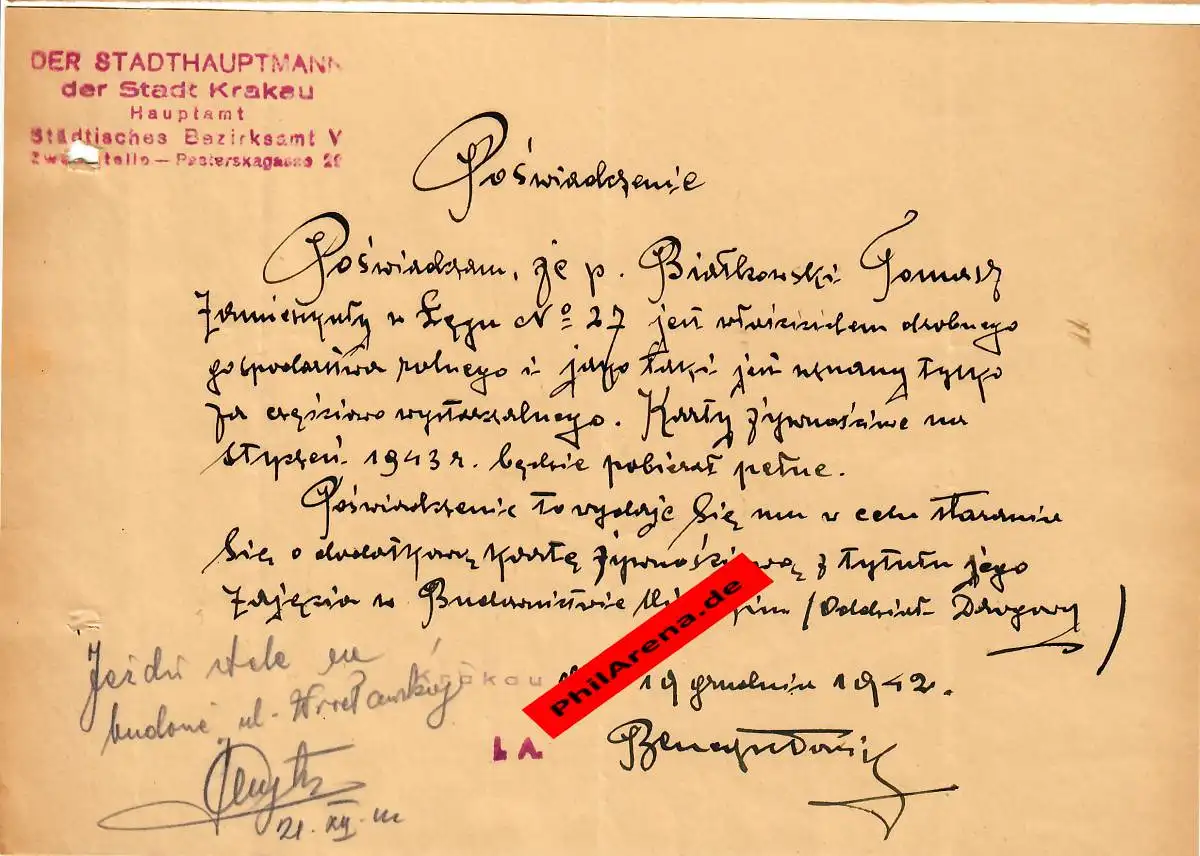 DER STADTHAUPTMANN
der Stadt Krakau
Hauptamt
Städtisches Bezirksamt V
stelle — Pasterskagasse 26
Poświadczenie
Poświadczam, że p. Białkowski Tomasz
zamieszkały w Łęgu No 27 jest właścicielem drobnego
gospodarstwa rolnego i jako taki jest uznany tylko
za częściowo wystarczalnego. Karty żywnościowe na
styczeń 1943 r. będzie pobierał pełne.
Poświadczenie to wydaje się mu w celu starania
się o dodatkową kartę z tytułu jego
zajęcia w Budownictwie (Oddział Drogowy)
Krakau
19 grudnia 1942.
I. A.
Jeździ stale na
budowę ul. Wrocławskiej
21. XII.
PhilArena.de